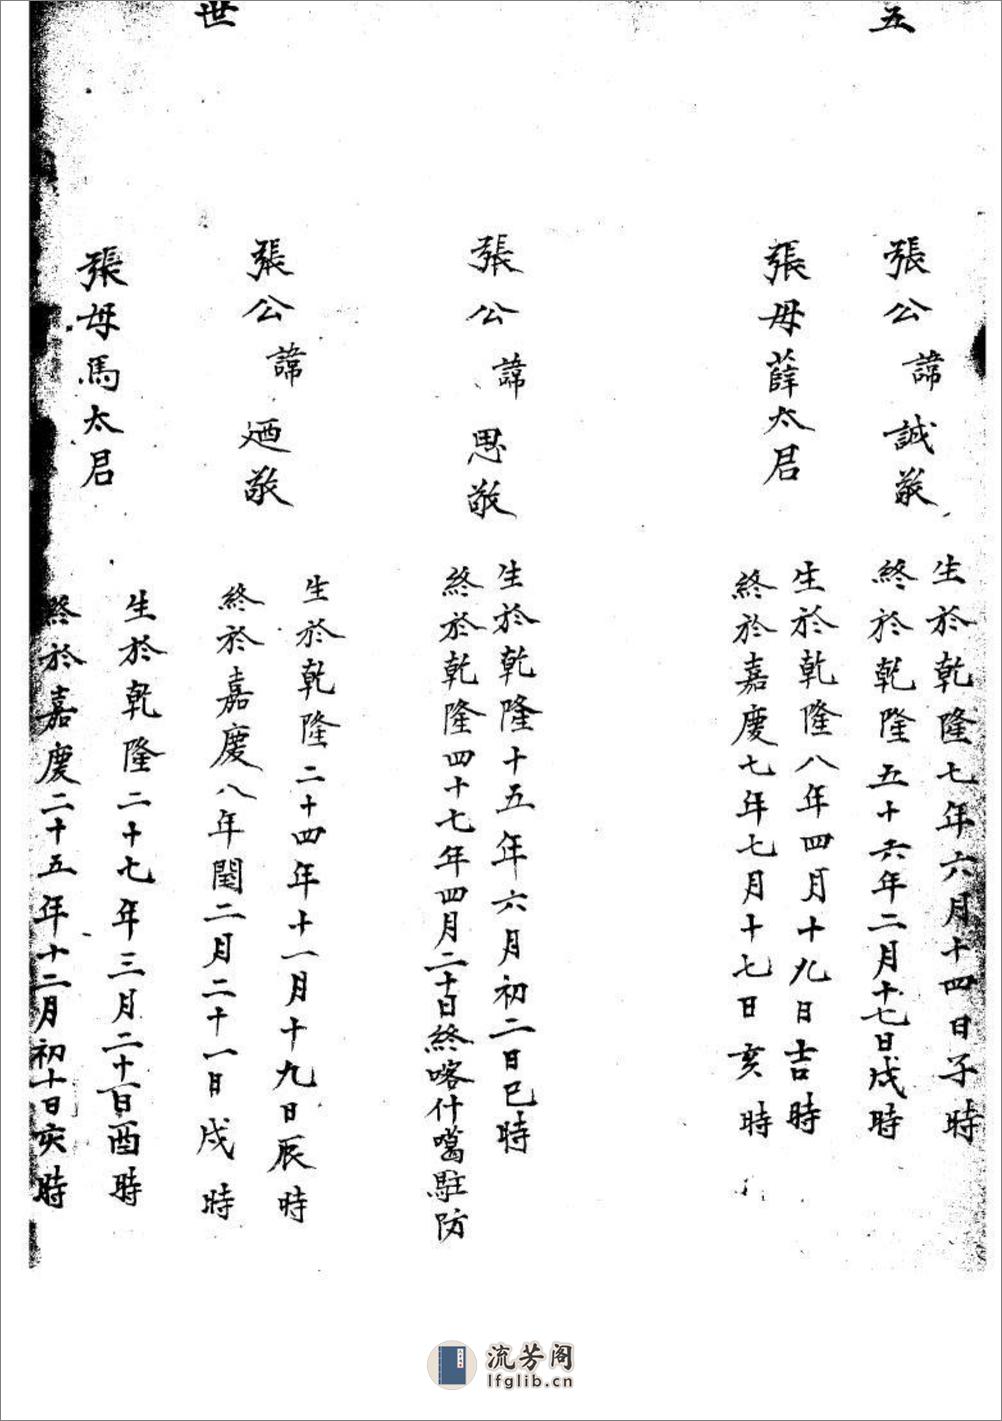 五
張公諱誠敬
生於乾隆七年六月十四日子時
終於乾隆五十六年二月十七日戌時
張母薛太君
生於乾隆八年四月十九日吉時
終於嘉慶七年七月十七日亥時
張公諱思敬
生於乾隆十五年六月初二日巳時
終於乾隆四十七年四月二十日終喀什噶駐防
世
張公諱迺敬
生於乾隆二十四年十一月十九日辰時
終於嘉慶八年閏二月二十一日戌時
張母馬太君
生於乾隆二十七年三月二十一日酉時
終於嘉慶二十五年十二月初十日亥時
流芳阁
lfglib.cn